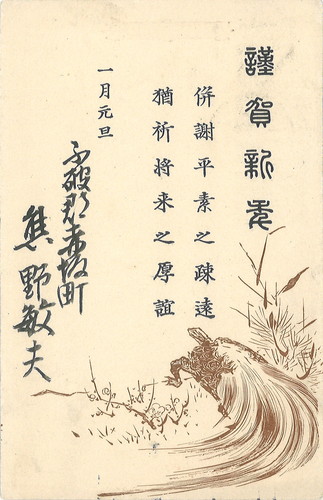 謹賀新年
併謝平素之疎遠
猶祈将来之厚誼
一月元旦
不破郡赤坂町
熊野敏夫